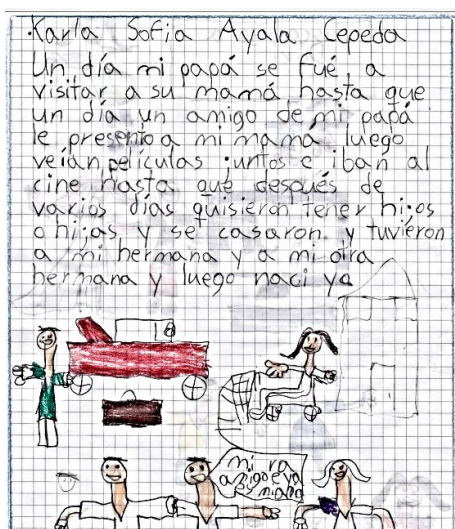 Karla Sofia Ayala Cepeda
Un día mi papá se fué a
visitar a su mamá hasta que
un día un amigo de mi papá
le presento a mi mamá luego
veían películas juntos e iban al
cine hasta que después de
varios días quisieron tener hijos
o hijas y se casaron y tuvieron
a mi hermana y a mi otra
hermana y luego naci yo
mi ra